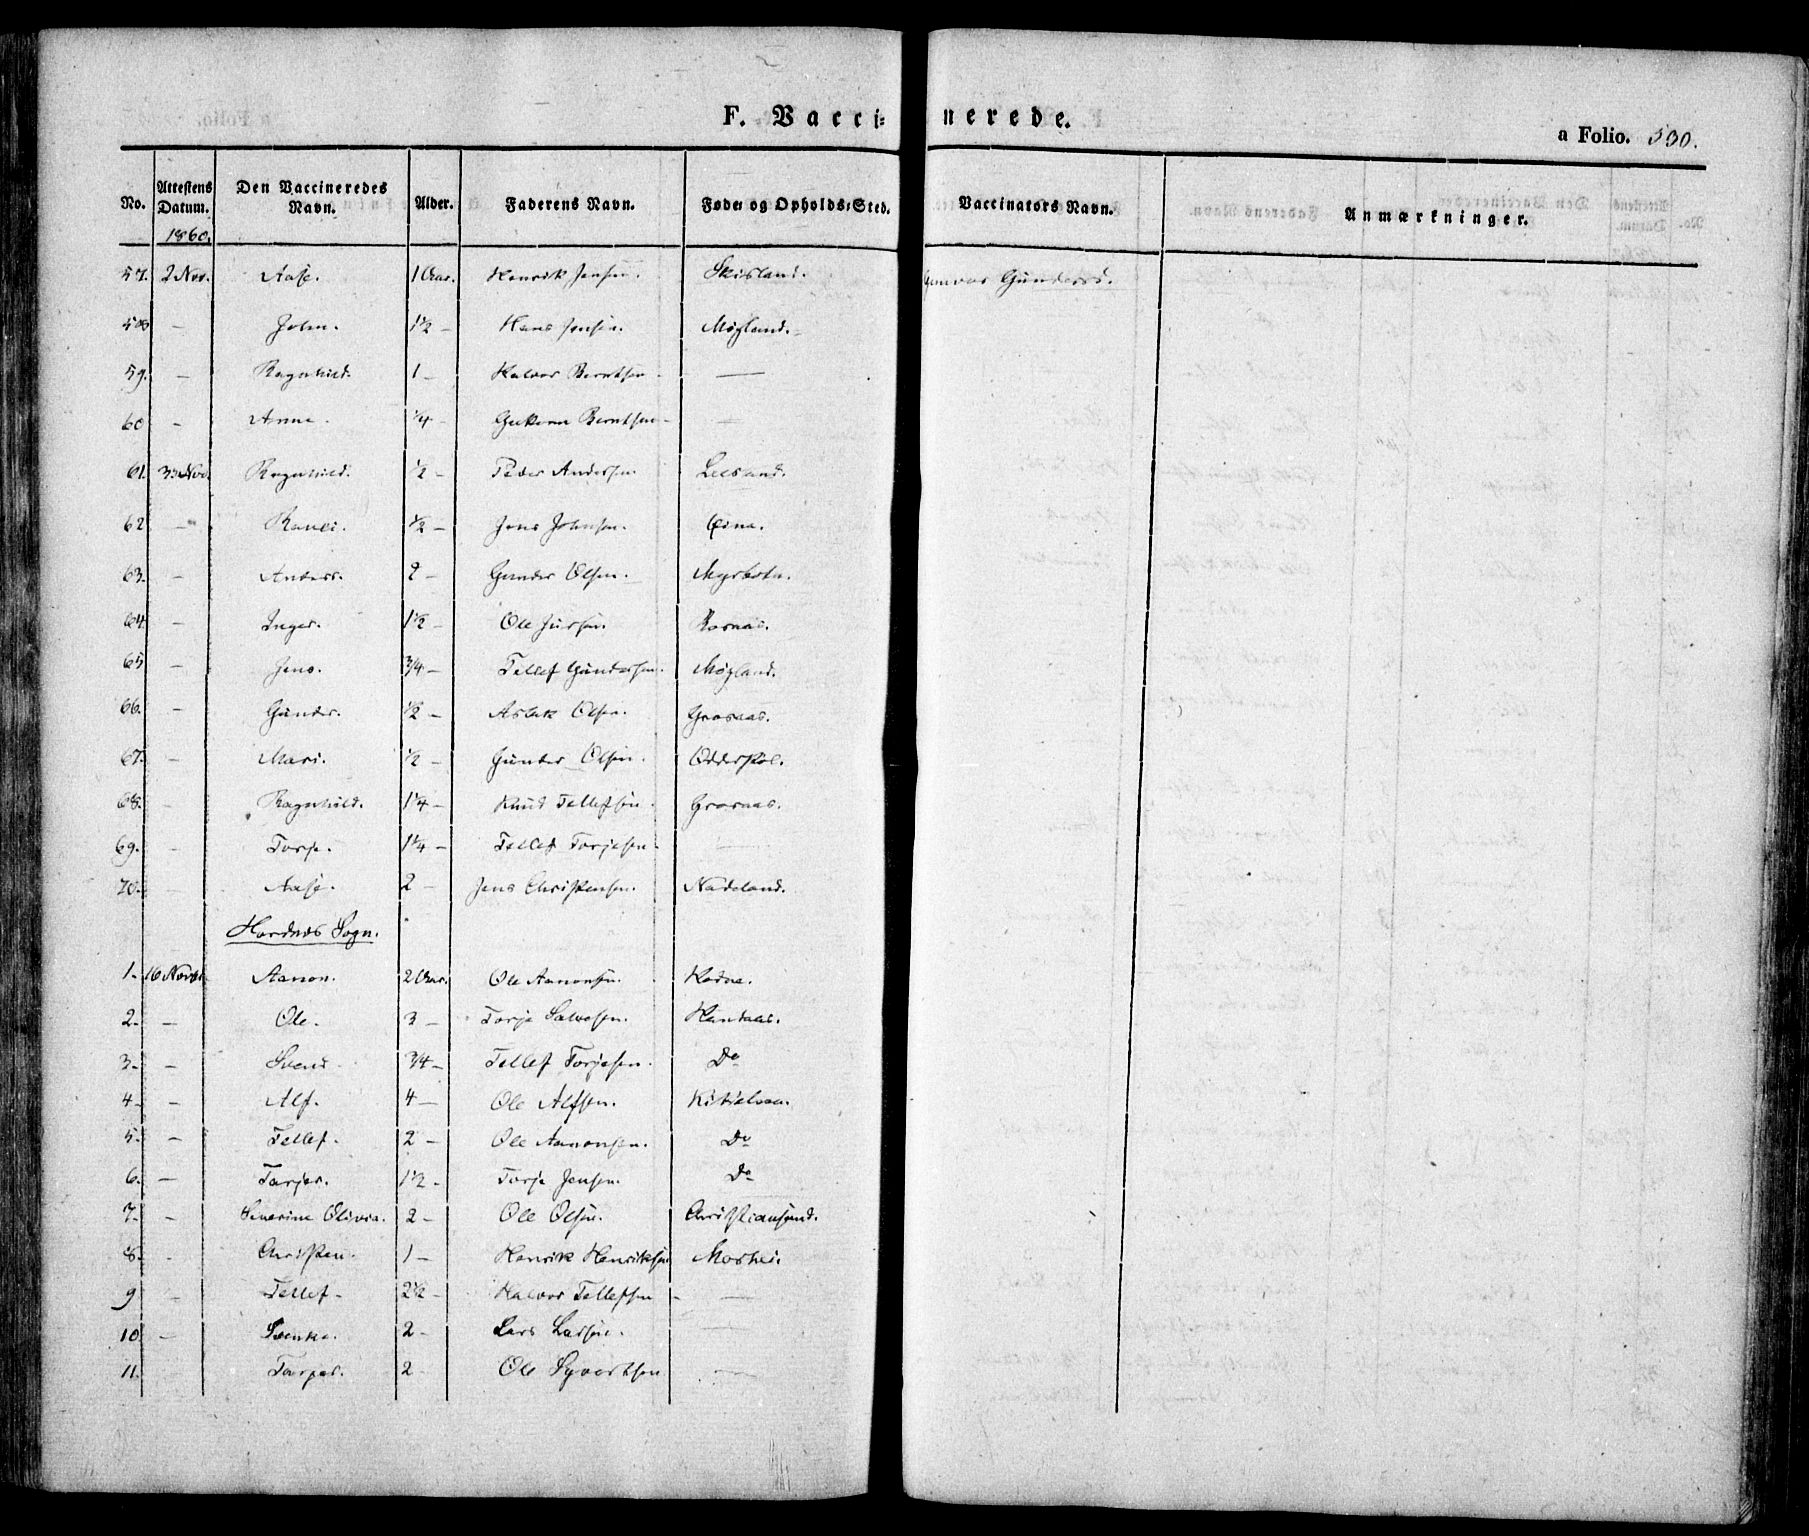 F. Vaccinerede.
a Folio. 530.
No. Attestens Datum. Den Vaccineredes Navn. Alder. Faderens Navn. Føde- og Opholds-Sted. Vaccinators Navn. Anmærkninger.
1860.
57. 2 Nov. Aase. 1 Aar. Henrik Jensen. Skisland. Gunvor Gunders.
58 – John. 1½ – Hans Jensen. Møgland.
59. – Ragnhild. 1 – Halvor Berntsen –
60 – Anne. ¼ – Berntsen –
61. Nov. Ragnhild. ½ – Peder Andersen
62 – ½ – Jens Johnsen.
63. – Anders. 2 – Gunder Olsen.
64. – Inger. 1½ Ole
65 – Jens. ¾ – Tellef Gundersen. Møgland.
66. – Gunder. ½ – Aslak Olsen. Grosaas.
67. – Mari. ½ – Gunder Olsen.
68. – Ragnhild. 1¼ – Knud Tellefsen. Grosaas.
69. – Torje. 1¼ – Tellef Torjesen –
70. – Aase. 2 – Jens Christensen. Nadeland.
Hordnes Sogn.
1. 16 Novbr. Aanon. 2 Aar. Ole Aanonsen.
2. – Ole. 3 – Torje Salvesen.
3. – Svend ¾ – Tellef Torjesen. Do
4. – Alf. 4 – Ole Alfsen.
5. – Tellef. 2 – Ole Aanonsen. Do
6. – Tarjer. 1½ – Torje Jensen. Do
7. – Severine Olivia. 2 – Ole Olsen. Christiansand.
8. – Christen. 1 – Henrik Henriksen Moshei.
9 – Tellef – 2½ – Halvor Tellefsen –
10 – 2 – Lars Larsen. –
11. Tarjer. 2 – Ole Syvertsen –